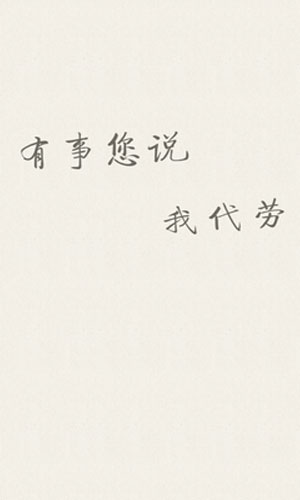 有事您说
我代劳